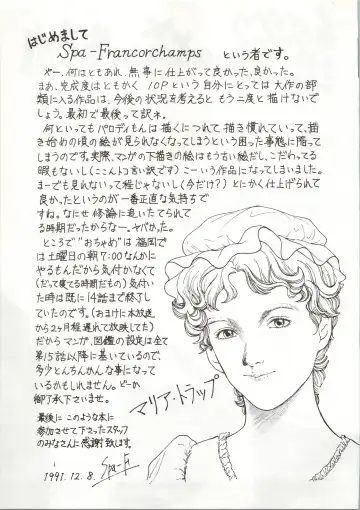 はじめまして
Spa-Francorchamps という者です。
やー、何はともあれ、無事に仕上がって良かった、良かった。
まあ、完成度はともかく 10Pという自分にとっては大作の部
類に入る作品は、今後の状況を考えると もう二度と描けないで
しょう。最初で最後って訳ネ。
何といってもパロディもんは描くにつれて、描き慣れていって、描
き始めの頃の絵が見られなくなってしまうという困った事態に陥って
しまうのです。実際、マンガの下描きの絵はもう古い絵だし、こだわってる
暇もないし(ここんトコ言い訳です) こーいう作品になってしまいました。
まーでも見れないって程じゃないし(今だけ?) とにかく仕上げられて
良かったというのが一番正直な気持ちで
すね。なにせ修論に追いたてられて
る時期だったからなー。ヤバかった。
ところで"おちゃめ"は福岡で
は土曜日の朝7:00なんかに
やるもんだから気付かなくて
(だって寝てる時間だもの)気付い
た時は既に14話まで終了し
ていたのです。(おまけに本放送
から2ヶ月程遅れて放映してた)
だからマンガ、図鑑の設定は全て
第15話以降に基いているので、
多少とんちんかんな事になって
いるかもしれません。どーか
御了承下さいませ。
最後に このような本に
参加させて下さったスタッフ
のみなさんに感謝致します。
1991.12.8. Spa-F
マリア・トラップ